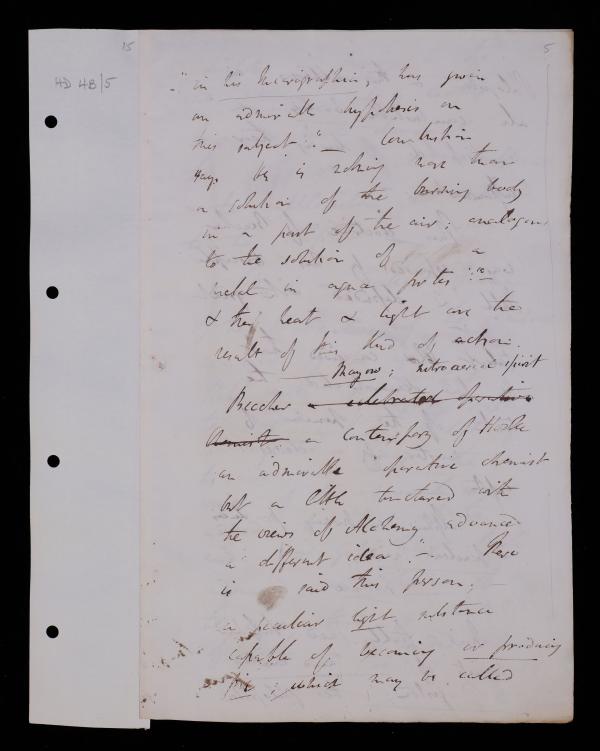 15
5
HD 4B/5
"in his Micrographia, has given
an admirable hypothesis on
this subject:"— Combustion
says he is nothing more than
a solution of the burning body
in a part of the air; analogous
to the solution of a
metal in aqua fortis:"—
& the heat & light are the
result of this kind of action.
— Mayow; nitroaerial spirit
Beccher a celebrated operative
chemist a contempory of Hooke
an admirable operative chemist
but a little tinctured with
the views of Alchemy advanced
a different idea".— There
is said this person;—
a peculiar light substance
capable of becoming or producing
fire; which may be called